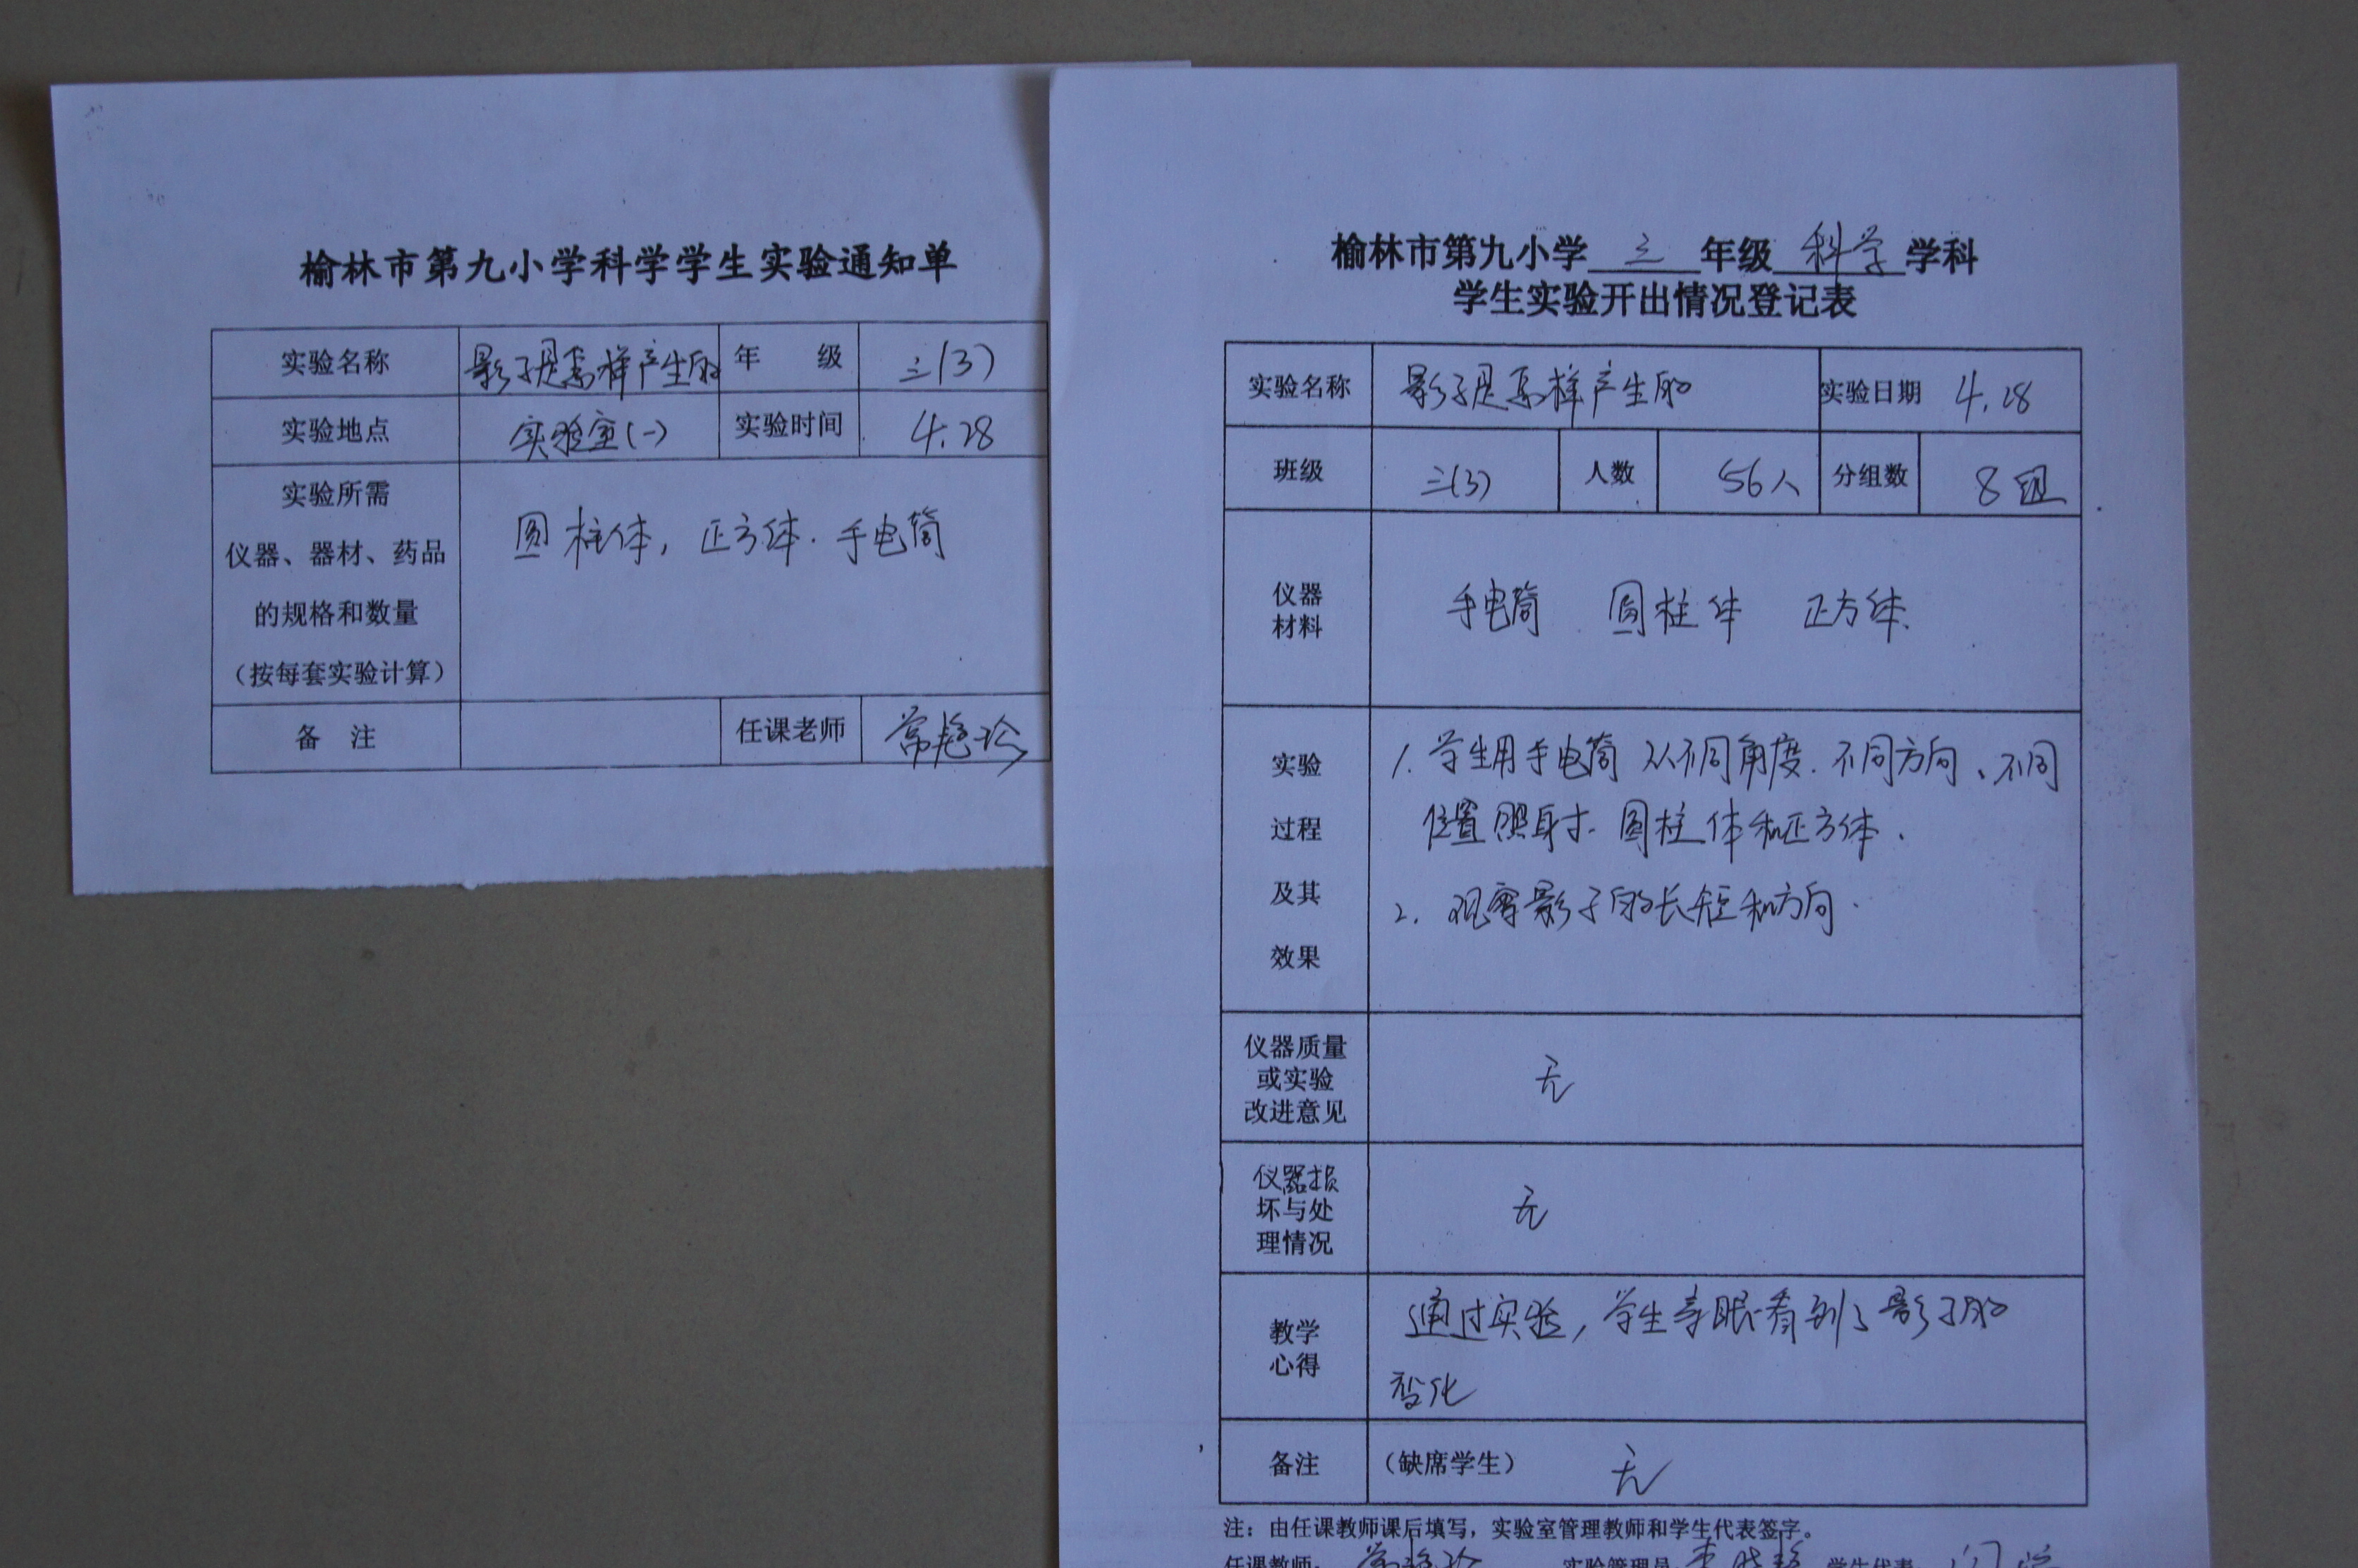 榆林市第九小学科学学生实验通知单
实验名称 影子是怎样产生的 年 级 三(3)
实验地点 实验室(一) 实验时间 4.28
实验所需
仪器、器材、药品
的规格和数量
（按每套实验计算）
圆柱体, 正方体. 手电筒
备 注 任课老师 常艳玲
榆林市第九小学 三 年级 科学 学科
学生实验开出情况登记表
实验名称 影子是怎样产生的 实验日期 4.28
班级 三(3) 人数 56人 分组数 8组
仪器
材料
手电筒 圆柱体 正方体.
实验
过程
及其
效果
1. 学生用手电筒从不同角度. 不同方向、不同
位置照射. 圆柱体和正方体.
2. 观察影子的长短和方向.
仪器质量
或实验
改进意见
无
仪器损
坏与处
理情况
无
教学
心得
通过实验, 学生亲眼看到了影子的
变化
备注 (缺席学生) 无
注：由任课教师课后填写，实验室管理教师和学生代表签字。
任课教师: 常艳玲 实验管理员: 学生代表: